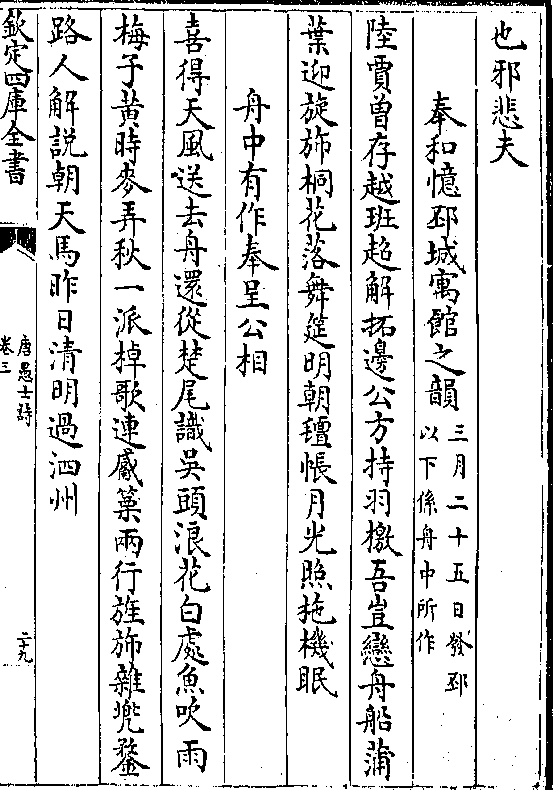 也邪悲夫
奉和憶邳城寓館之韻三月二十五日發邳以下係舟中所作
陸賈曾存越班超解拓邊公方持羽檄吾豈戀舟船蒲
葉迎旋斾桐花落舞筵明朝氊帳月光照拖機眠
舟中有作奉呈公相
喜得天風送去舟還從楚尾識吳頭浪花白處魚吹雨
梅子黃時麥弄秋一派棹歌連觱篥兩行旌斾雜兠鍪
路人解說朝天馬昨日清明過泗州
欽定四庫全書
唐愚士詩
卷三
二十九